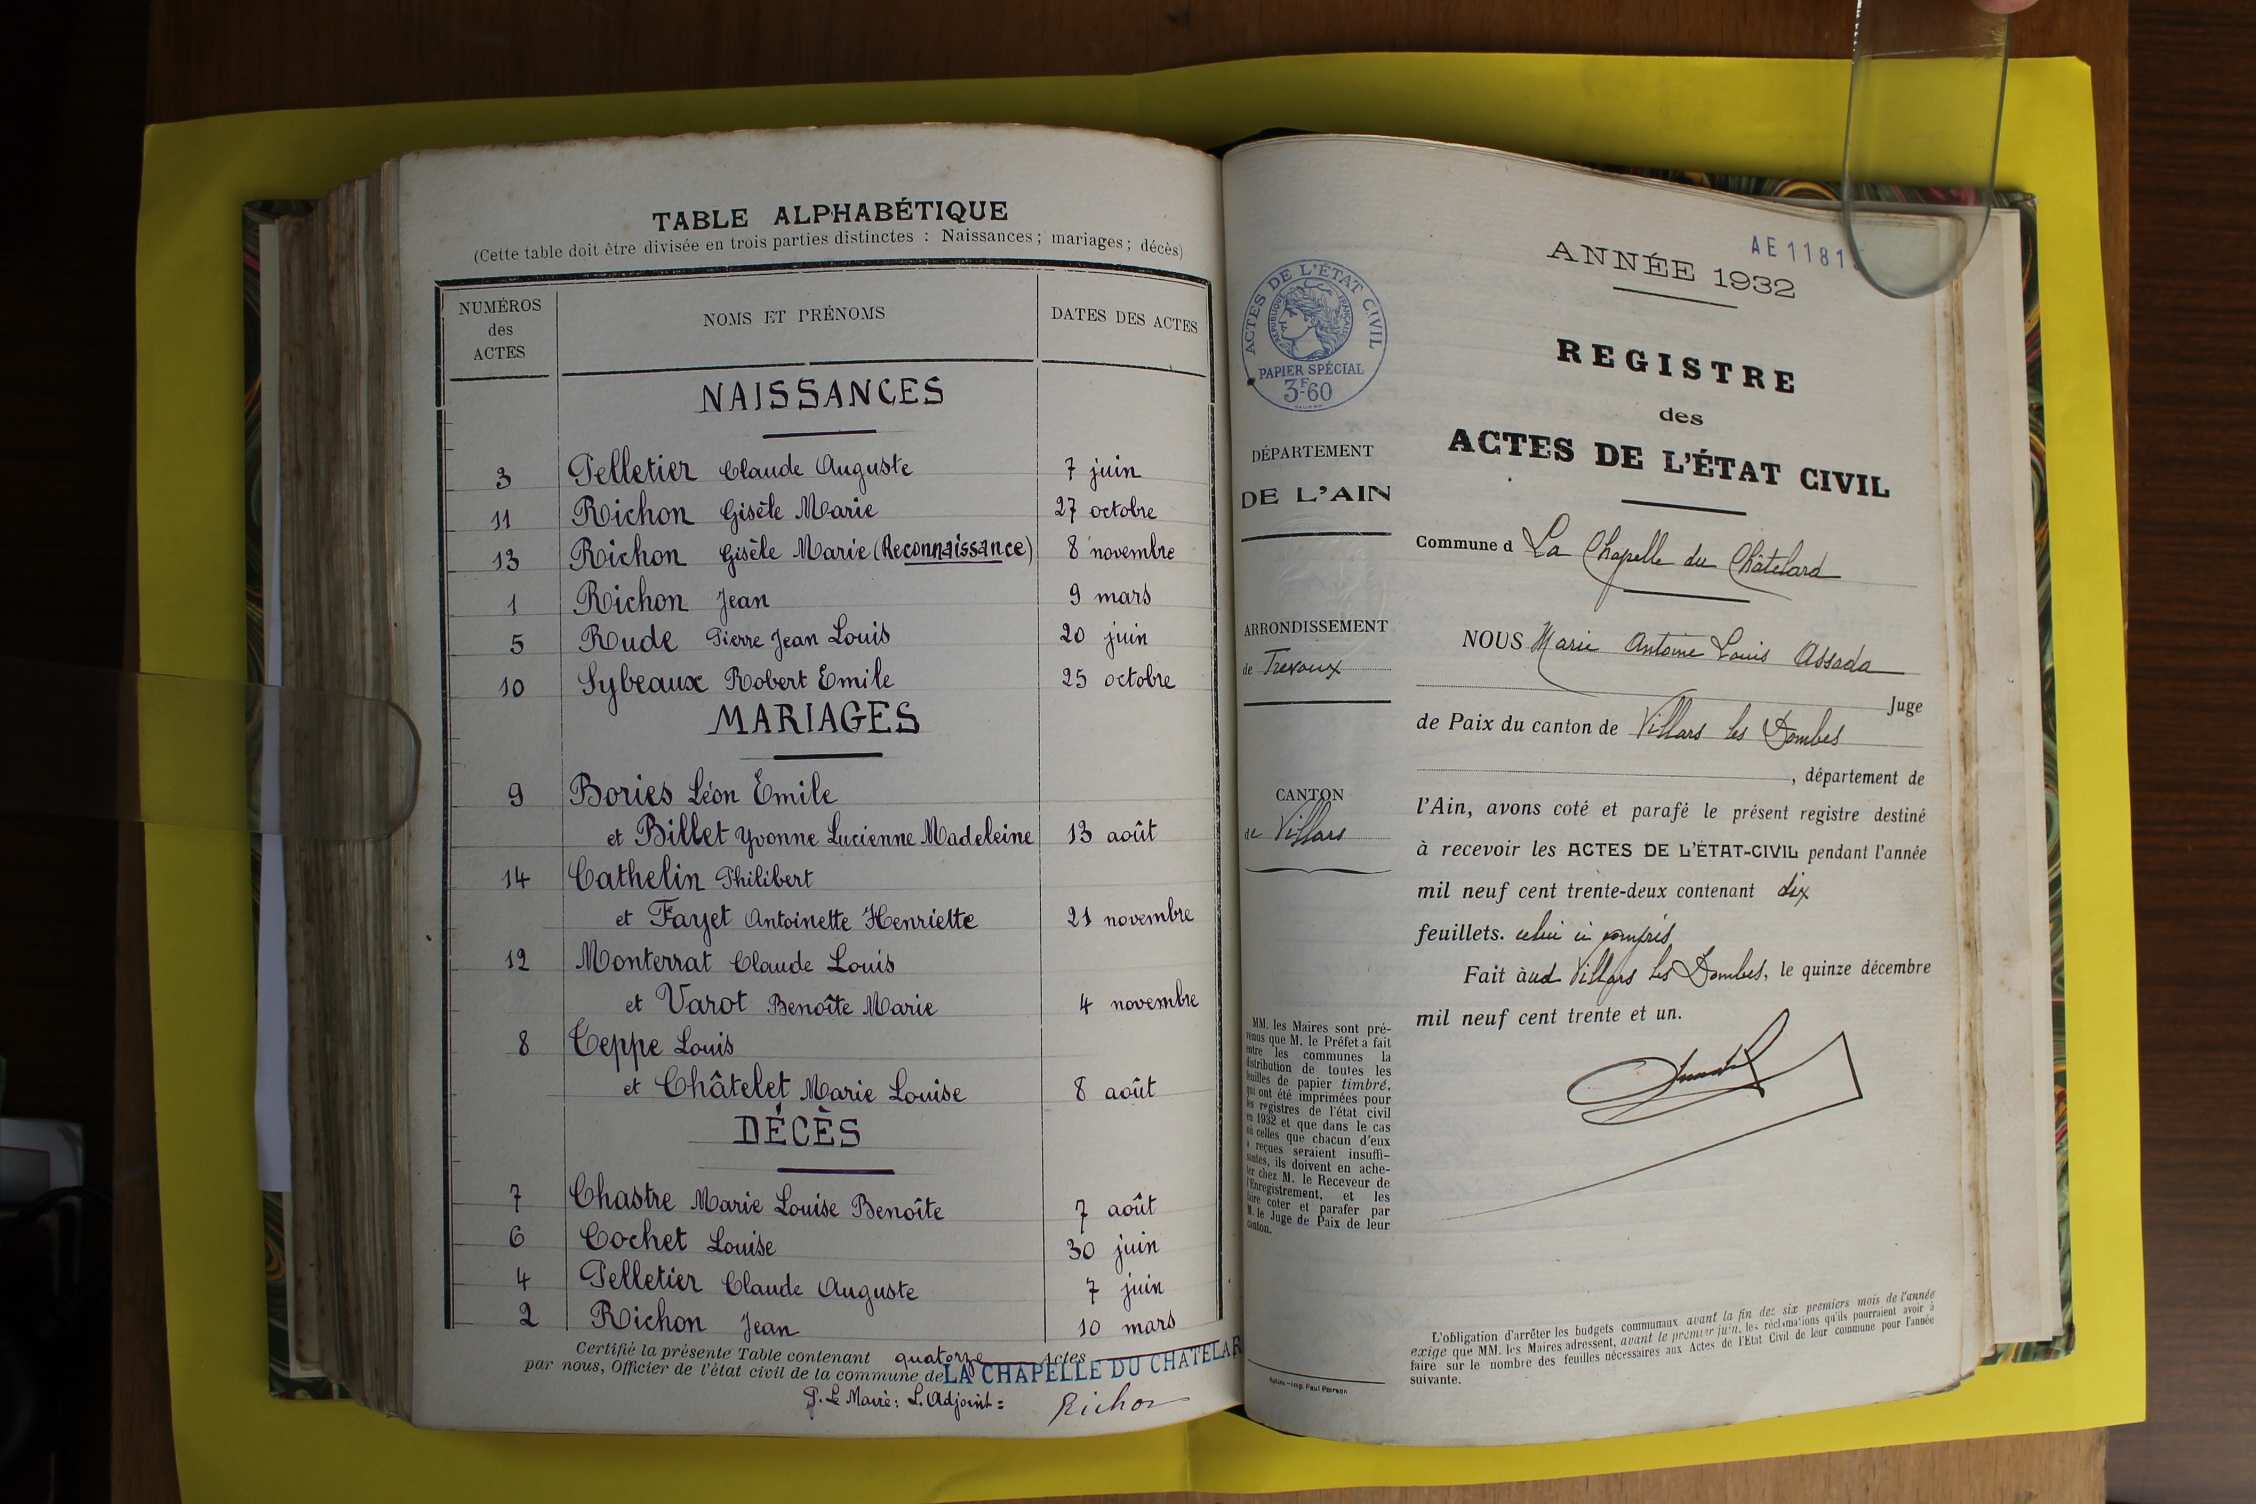 TABLE ALPHABÉTIQUE
(Cette table doit être divisée en trois parties distinctes : Naissances ; mariages ; décès)
NUMÉROS des ACTES NOMS ET PRÉNOMS DATES DES ACTES
NAISSANCES
3 Pelletier Claude Auguste 7 juin
11 Richon Gisèle Marie 27 octobre
13 Richon Gisèle Marie (Reconnaissance) 8 novembre
1 Richon Jean 9 mars
5 Rude Pierre Jean Louis 20 juin
10 Sybeaux Robert Emile 25 octobre
MARIAGES
9 Bories Léon Emile
et Billet Yvonne Lucienne Madeleine 13 août
14 Cathelin Philibert
et Fayet Antoinette Henriette 21 novembre
12 Monterrat Claude Louis
et Varot Benoîte Marie 4 novembre
8 Teppe Louis
et Châtelet Marie Louise 8 août
DÉCÈS
7 Chastre Marie Louise Benoîte 7 août
6 Cochet Louise 30 juin
4 Pelletier Claude Auguste 7 juin
2 Richon Jean 10 mars
Certifié la présente Table contenant quatorze Actes
par nous, Officier de l'état civil de la commune de LA CHAPELLE DU CHATELAR
P. Le Maire : L'Adjoint :
Richon
AE 1181
ANNÉE 1932
ACTES DE L'ÉTAT CIVIL
RÉPUBLIQUE FRANÇAISE
PAPIER SPÉCIAL
3F60
DÉPARTEMENT
DE L'AIN
ARRONDISSEMENT
de Trévoux
CANTON
de Villars
MM. les Maires sont pré-
venus que M. le Préfet a fait
entre les communes la
distribution de toutes les
feuilles de papier timbré,
qui ont été imprimées pour
les registres de l'état civil
en 1932 et que dans le cas
où celles que chacun d'eux
a reçues seraient insuffi-
santes, ils doivent en ache-
ter chez M. le Receveur de
l'Enregistrement, et les
faire coter et parafer par
M. le Juge de Paix de leur
canton.
Imp. Paul Pierson
REGISTRE
des
ACTES DE L'ÉTAT CIVIL
Commune d La Chapelle du Châtelard
NOUS Marie Antoine Louis Assada
Juge
de Paix du canton de Villars les Dombes
, département de
l'Ain, avons coté et parafé le présent registre destiné
à recevoir les ACTES DE L'ÉTAT-CIVIL pendant l'année
mil neuf cent trente-deux contenant dix
feuillets. celui ci compris
Fait à Villars les Dombes, le quinze décembre
mil neuf cent trente et un.
L'obligation d'arrêter les budgets communaux avant la fin des six premiers mois de l'année
exige que MM. les Maires adressent, avant le premier juin, les réclamations qu'ils pourraient avoir à
faire sur le nombre des feuilles nécessaires aux Actes de l'Etat Civil de leur commune pour l'année
suivante.